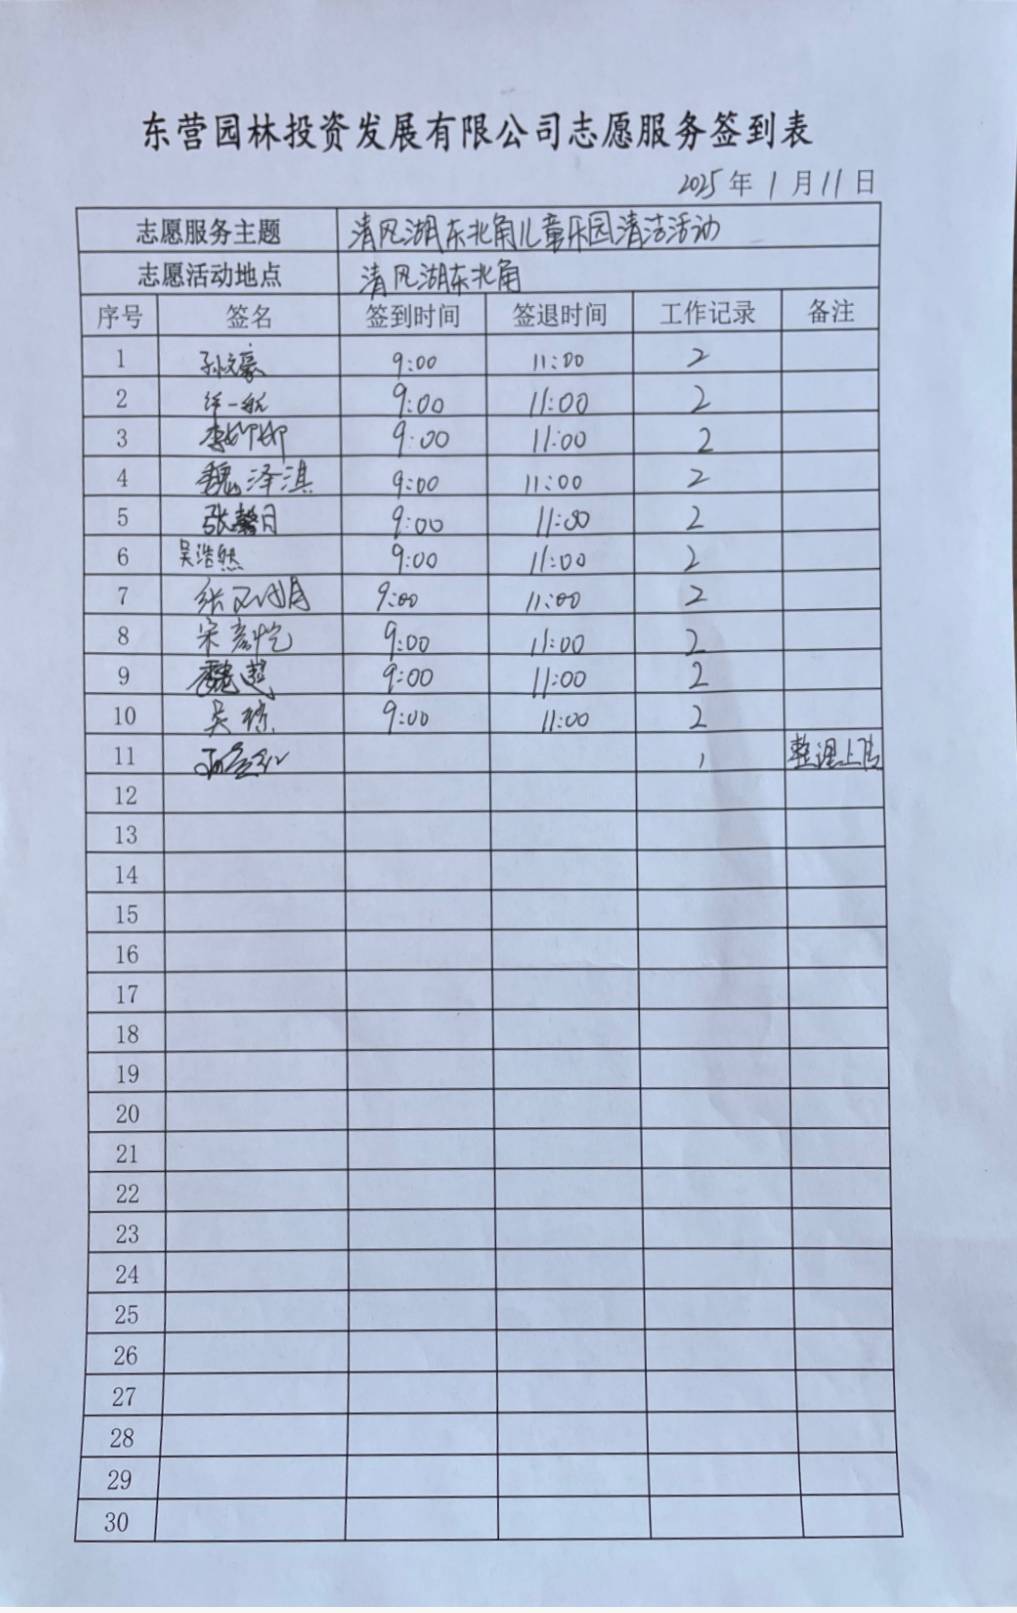 东营园林投资发展有限公司志愿服务签到表
2025年1月11日
志愿服务主题 清风湖东北角儿童乐园清洁活动
志愿活动地点 清风湖东北角
序号 签名 签到时间 签退时间 工作记录 备注
1 孙文豪 9:00 11:00 2
2 一航 9:00 11:00 2
3 李 9:00 11:00 2
4 魏泽淇 9:00 11:00 2
5 张馨月 9:00 11:00 2
6 吴浩然 9:00 11:00 2
7 张 9:00 11:00 2
8 宋彦恺 9:00 11:00 2
9 魏超 9:00 11:00 2
10 吴琼 9:00 11:00 2
11 1 整理上传
12
13
14
15
16
17
18
19
20
21
22
23
24
25
26
27
28
29
30